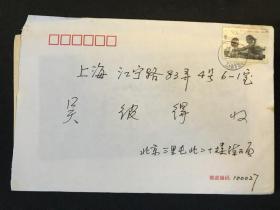 上海 江宁路83弄4号6-1室
吴 彼 得 收
北京三里屯北二十楼
邮政编码：100027